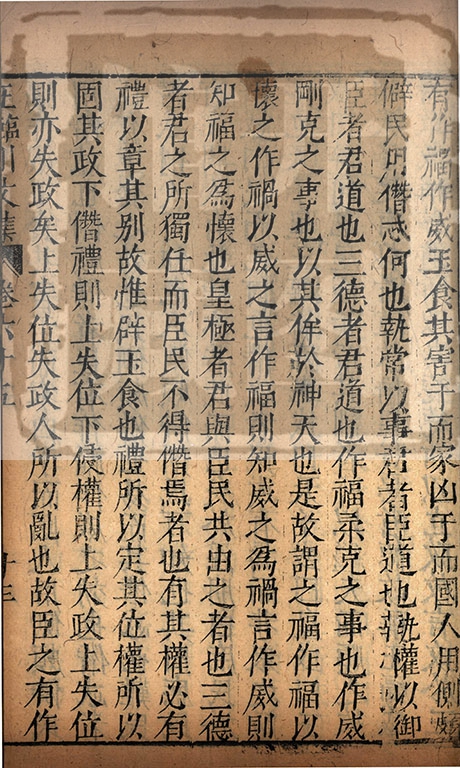 有作福作威玉食其害于而家凶于而國人用側頗
僻民用僭忒何也執常以事君者臣道也執權以御
臣者君道也三德者君道也作福柔克之事也作威
剛克之事也以其侔於神天也是故謂之福作福以
懷之作禍以威之言作福則知威之爲禍言作威則
知福之爲懷也皇極者君與臣民共由之者也三德
者君之所獨任而臣民不得僭焉者也有其權必有
禮以章其別故惟辟玉食也禮所以定其位權所以
固其政下僭禮則上失位下侵權則上失政上失位
則亦失政矣上失位失政人所以亂也故臣之有作
王臨川文集 卷六十五 十三